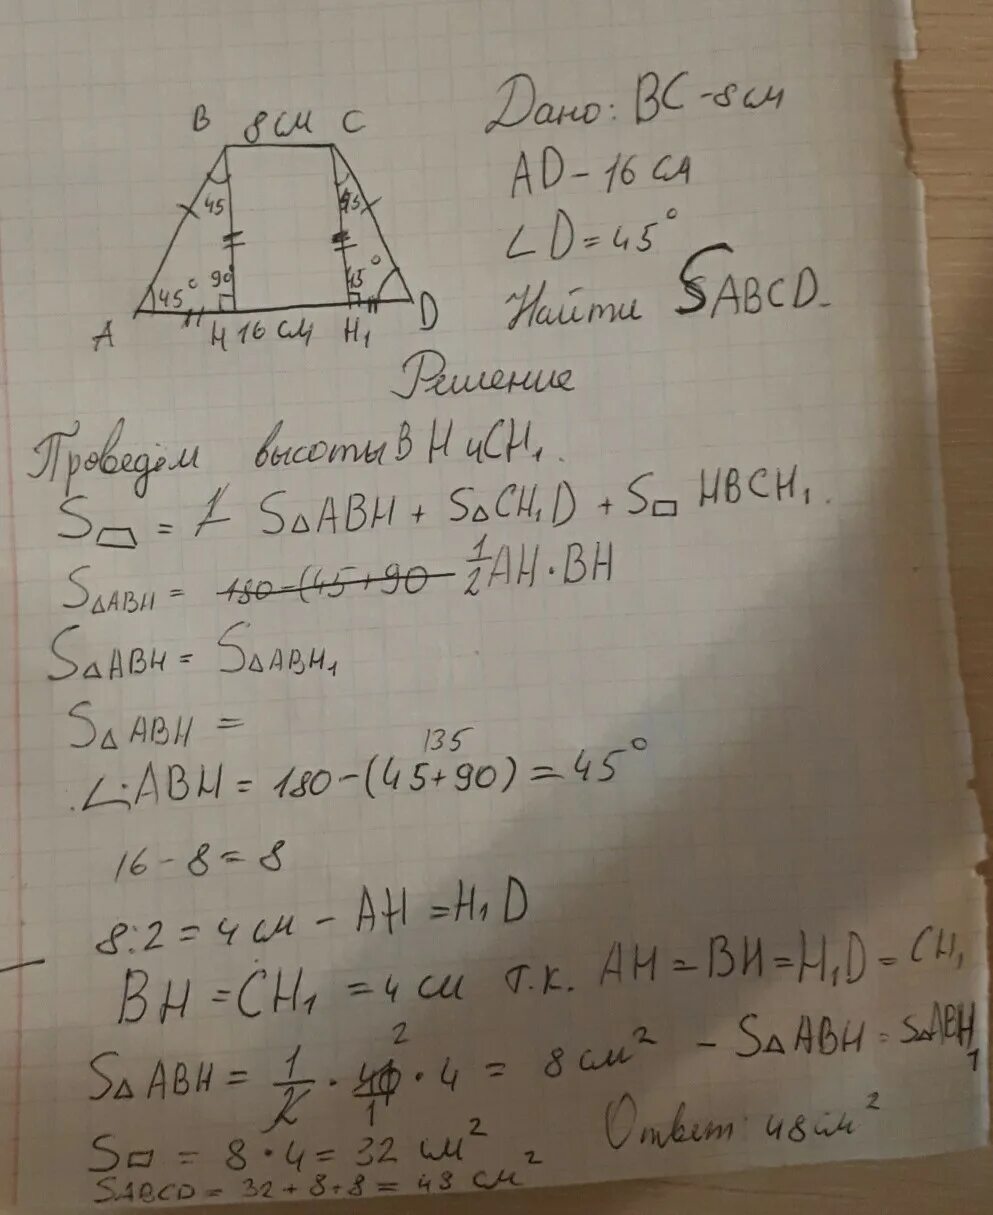 B 8 см C
45 45
45° 90 45°
A H 16 см H₁ D
Дано: BC - 8 см
AD - 16 см
∠D = 45°
Найти SABCD.
Решение
Проведём высоты BH и CH₁.
S▱ = S△ABH + S△CH₁D + S▭ HBCH₁.
S△ABH = 180-(45+90 1/2 AH·BH
S△ABH = S△ABH₁
S△ABH =
135
∠ABH = 180-(45+90) = 45°
16 - 8 = 8
8:2 = 4 см - AH = H₁D
BH = CH₁ = 4 см т.к. AH = BH = H₁D = CH₁
2
S△ABH = 1/2 · 4 · 4 = 8 см² - S△ABH = S△ABH₁
1
S▭ = 8·4 = 32 см²
Ответ: 48 см²
SABCD = 32+8+8 = 48 см²